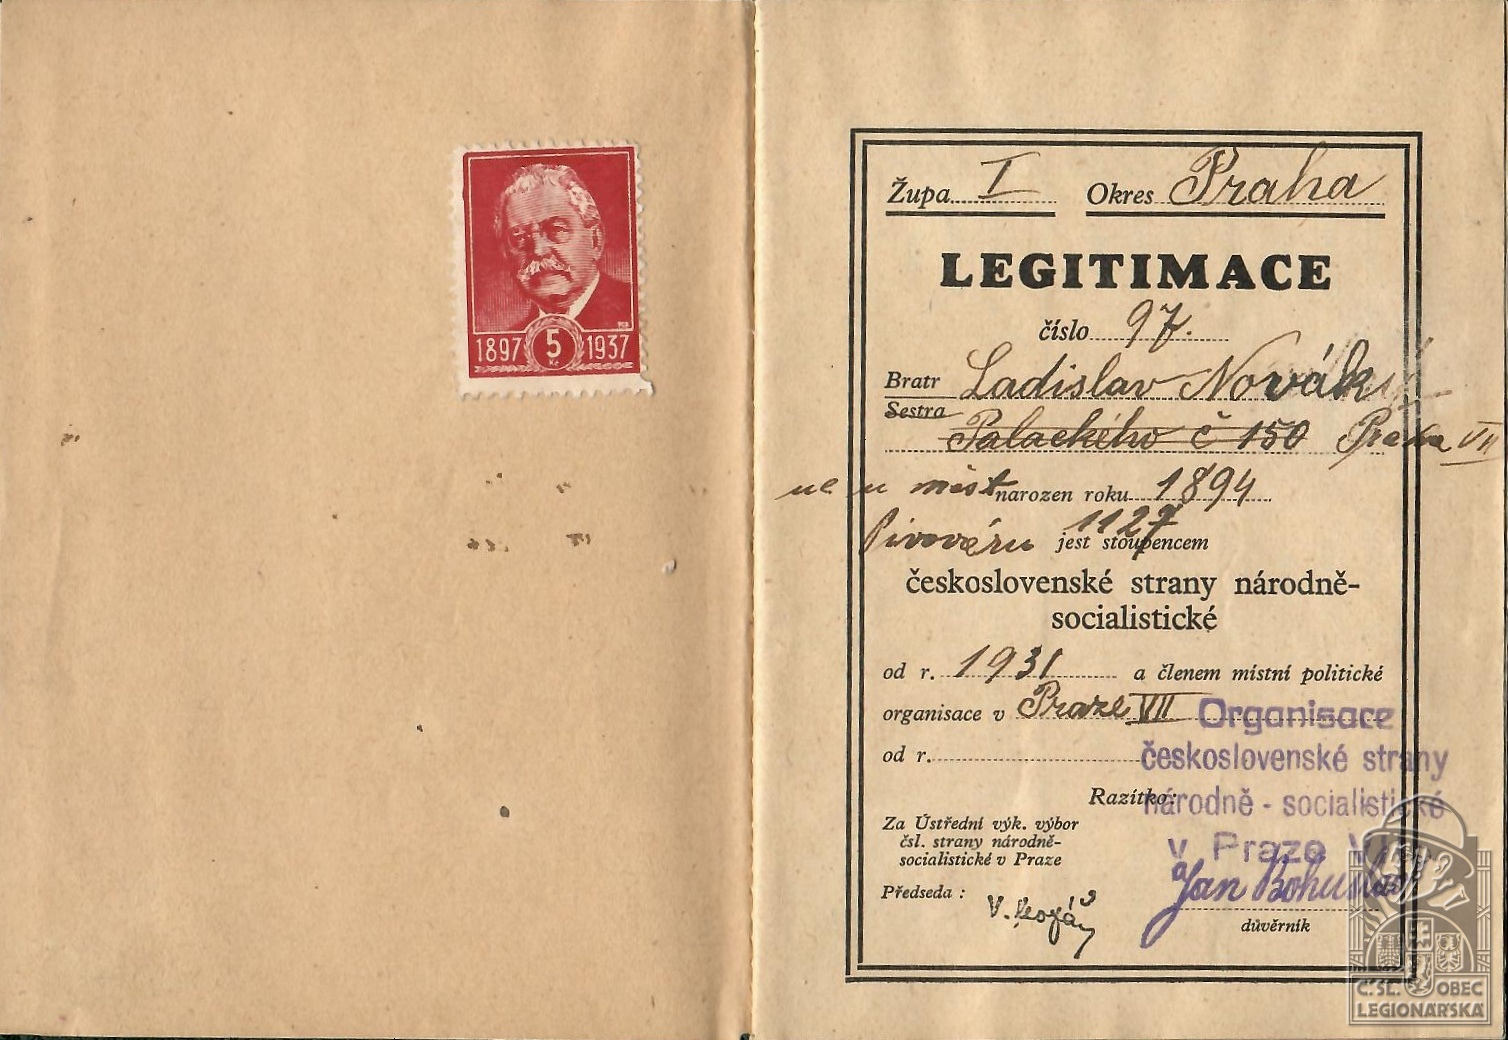 1897 5 Kč 1937
Župa I Okres Praha
LEGITIMACE
číslo 97.
Bratr Ladislav Novák
Sestra
Palackého č 150 Praha VII
narozen roku 1894
Pivováru 1127
jest stoupencem
československé strany národně-
socialistické
od r. 1931 a členem místní politické
organisace v Praze VII
od r.
Organisace
československé strany
národně - socialistické
v Praze VII
Razítko:
Za Ústřední výk. výbor
čsl. strany národně-
socialistické v Praze
Předseda :
Jan
důvěrník
Č.SL. OBEC
LEGIONÁŘSKÁ